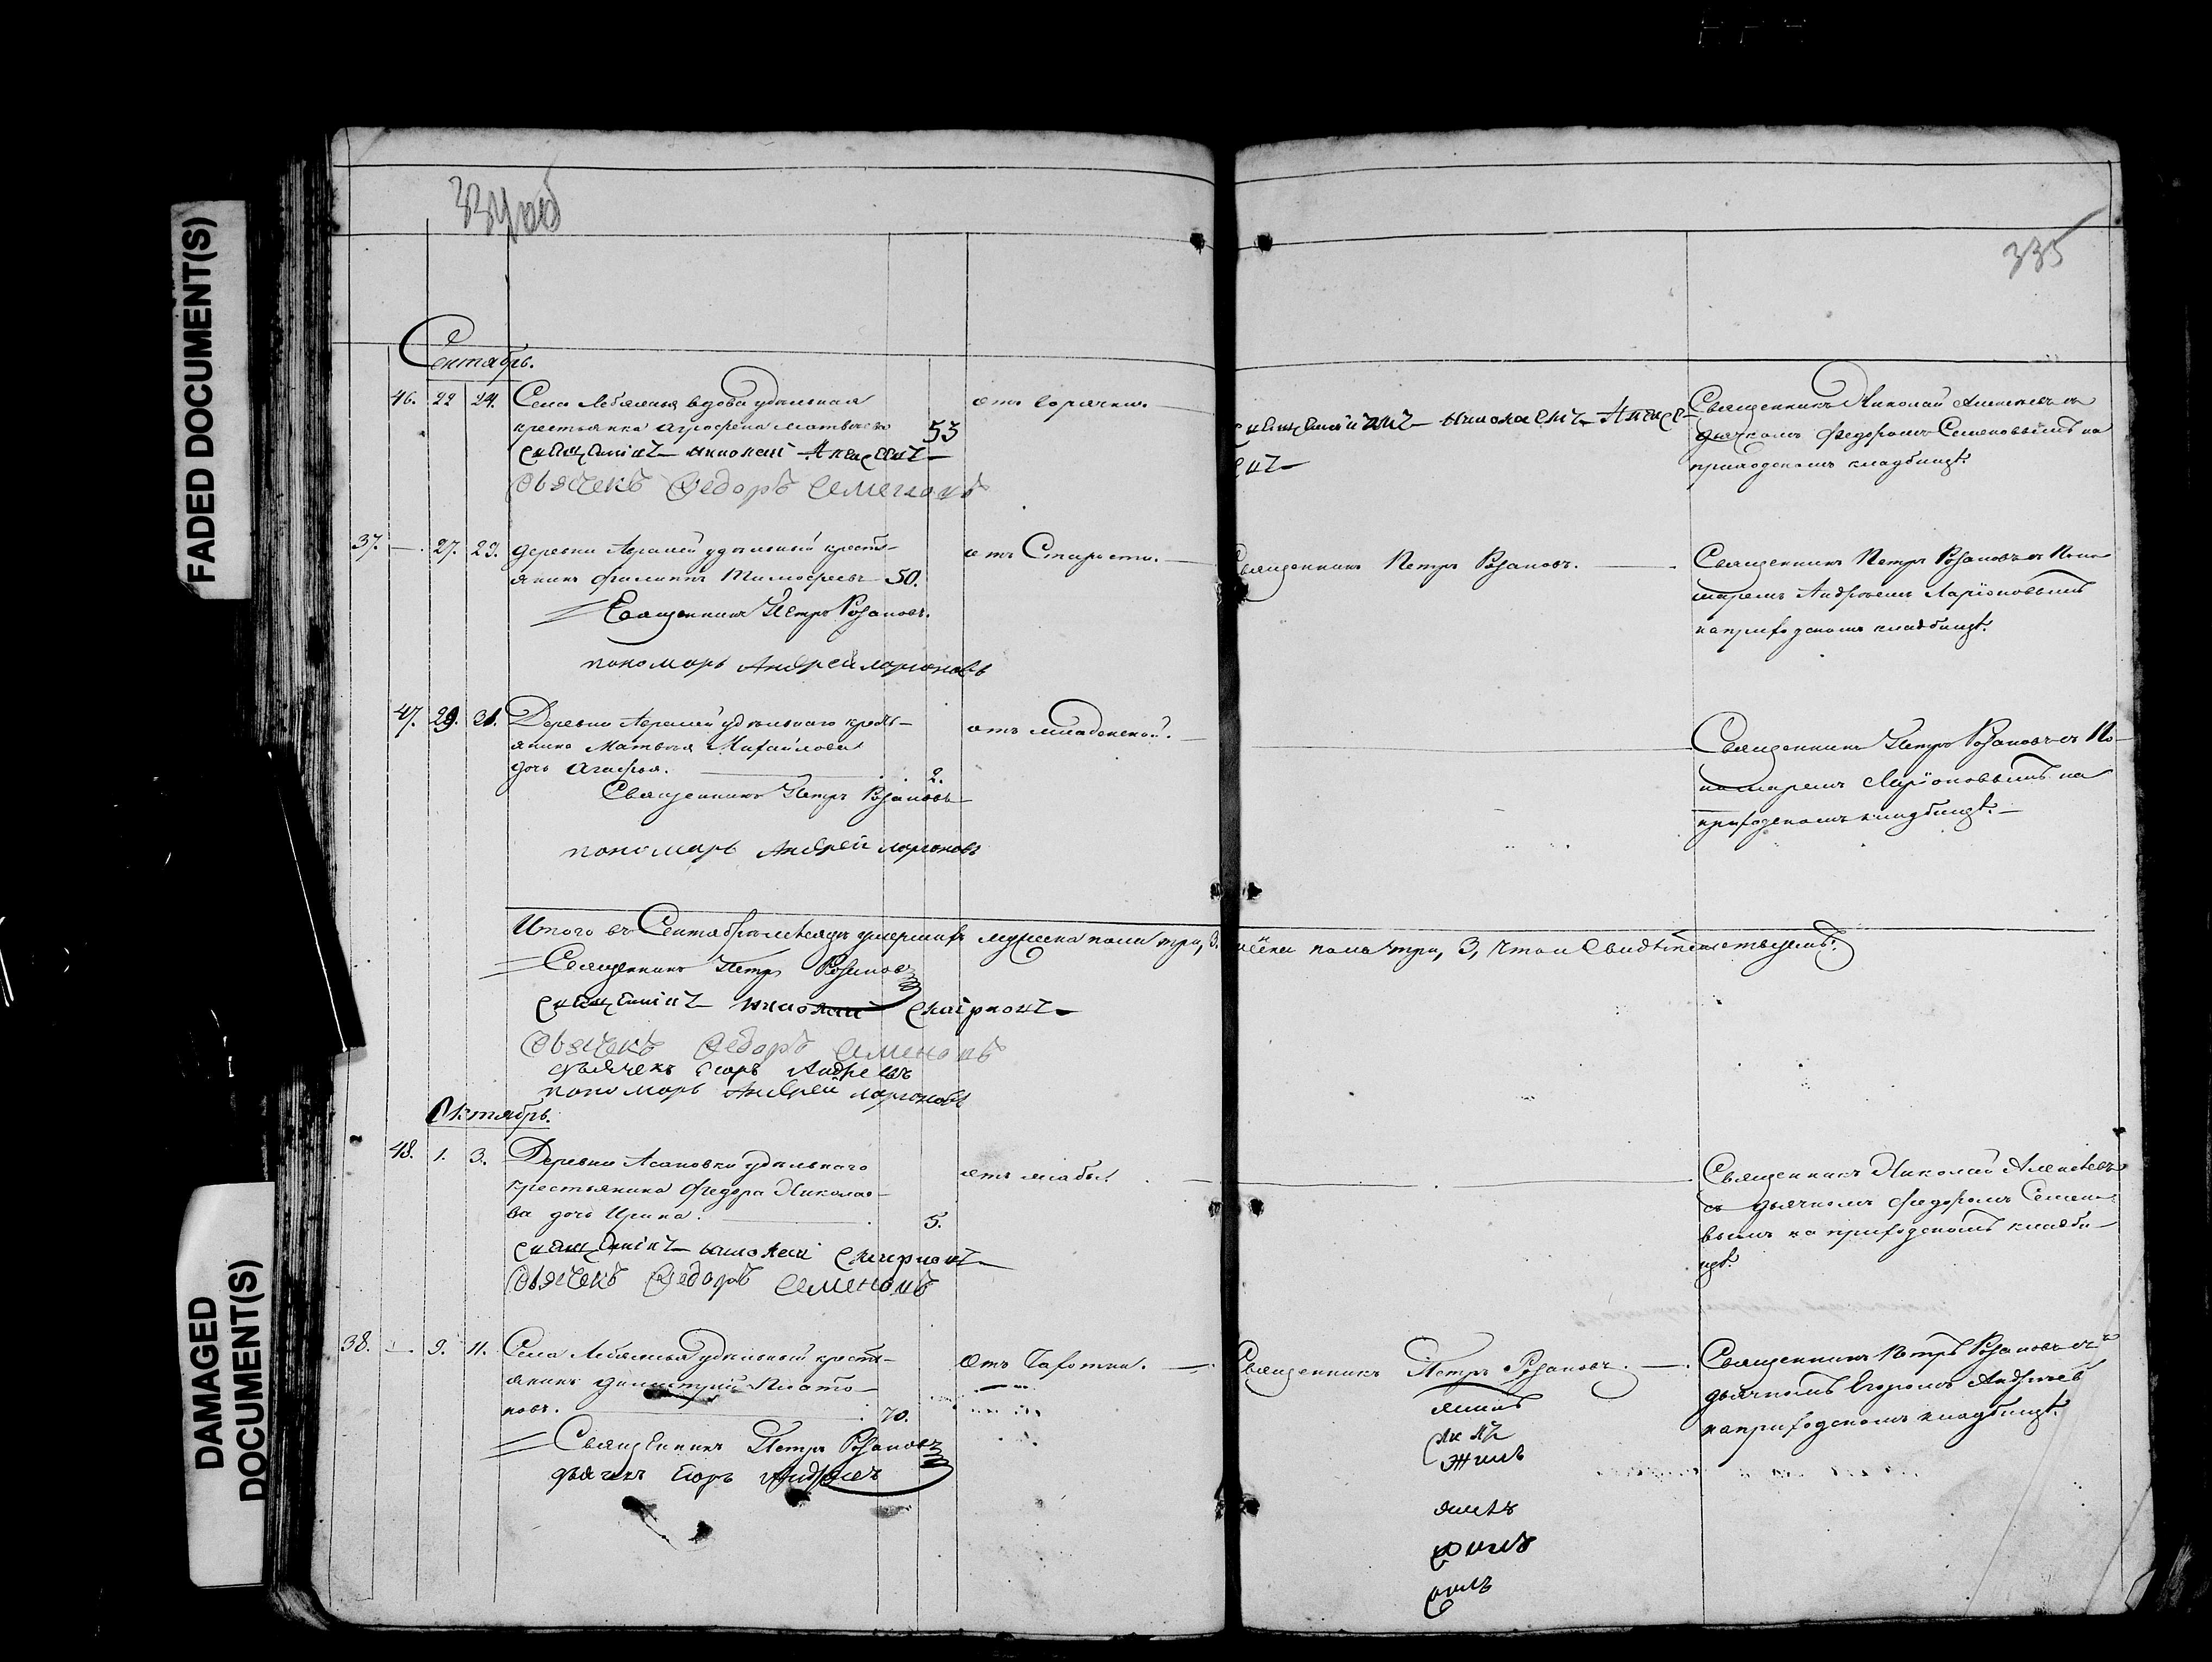 334об
335
FADED DOCUMENT(S)
DAMAGED DOCUMENT(S)
Сентябрь.
46. 22 24. Села Лебяжья вдова удѣльная
крестьянка Агрофена Матвѣева 53
отъ горячки.
Священникъ Николай
Дьячекъ Ѳедоръ Семеновъ
Священникъ Николай Алексѣевъ съ
дьячкомъ Федоромъ Семеновымъ на
приходскомъ кладбищѣ.
37. — 27. 29. Деревни удѣльный кресть-
янинъ Филиппъ Тимофеевъ 50.
отъ Старости.
Священникъ Петръ Розановъ.
пономарь Андрей Ларионовъ
Священникъ Петръ Розановъ.
Священникъ Петръ Розановъ съ Поно-
маремъ Андреемъ Ларіоновымъ
на приходскомъ кладбищѣ.
47. 29. 31. Деревни удѣльнаго кресть-
янина Матвѣя Михайлова
дочь Агафья. 2.
отъ младенской.
Священникъ Петръ Розановъ
пономарь Андрей Ларионовъ
Священникъ Петръ Розановъ съ По-
номаремъ Ларіоновымъ на
приходскомъ кладбищѣ.
Итого въ Сентябрѣ мѣсяцѣ умершихъ мужеска пола три, 3. женска пола три, 3, что и Свидѣтельствуемъ:
Священникъ Петръ Розановъ
Священникъ Николай
Дьячекъ Ѳедоръ Семеновъ
дьячекъ Егоръ Андреевъ
пономарь Андрей Ларионовъ
Октябрь.
48. 1. 3. Деревни Асановки удѣльнаго
крестьянина Федора Николае-
ва дочь Ирина. 5.
отъ
Священникъ Николай
Дьячекъ Ѳедоръ Семеновъ
Священникъ Николай Алексѣевъ
съ дьячкомъ Федоромъ Семено-
вымъ на приходскомъ кладби-
щѣ.
38. — 9. 11. Села Лебяжья удѣльный кресть-
янинъ Димитрій Плато-
новъ. 70.
Отъ Чахотки.
Священникъ Петръ Розановъ
дьячекъ Егоръ Андреевъ
Священникъ Петръ Розановъ.
Священникъ Петръ Розановъ съ
дьячкомъ Егоромъ Андреевъ
на приходскомъ кладбищѣ.